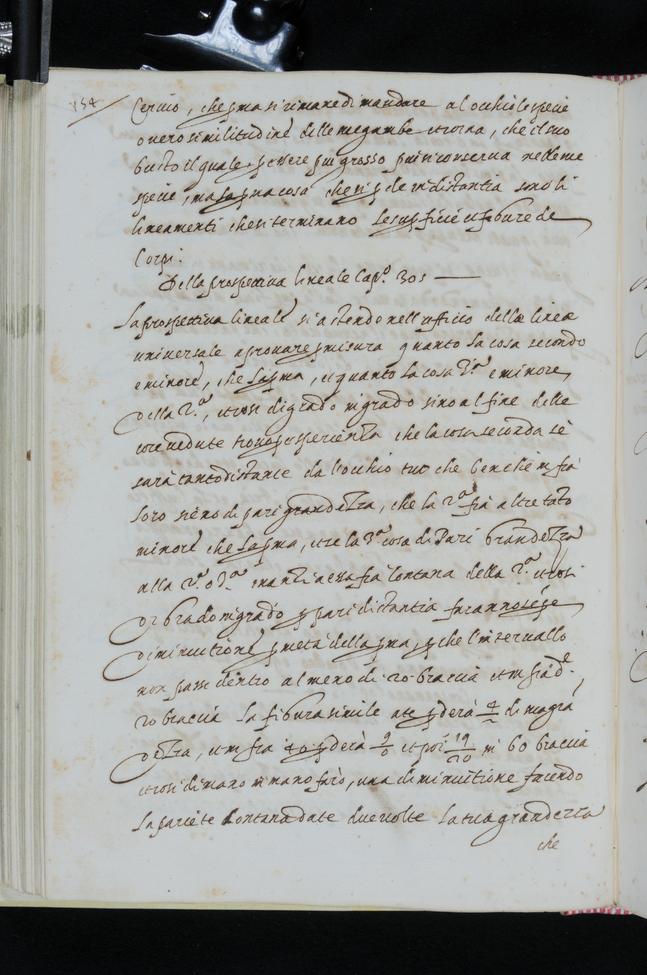 154
Cervio, che pma si rimane di mandare al occhio le spetie
o vero similitudine delle me gambe et corna, che il suo
busto il quale p essere piu grosso piu si conserva nelle me
spetie, ma la pma cosa che si pde in distantia sono li
lineamenti che si terminano le supficie u figure de
Corpi.
Della prospettiva lineale Cap.º 305
La prospettiva lineale si astende nell'ufficio delle linee
universale a provare p misura quanto la cosa secondo
e minore, che la pma, et quanto la cosa 3.ª e minore,
Della 2.ª, et cosi di grado in grado sino al fine delle
cose vedute trovo p esperienza che la cosa seconda se
sarà tanto distante da l'occhio tuo che ben che in fra
loro sieno di pari grandezza, che la 2.ª fia altretato
minore che la pma, et se la 3.ª cosa di Pari Grandezza
alla 2.ª o 3.ª inanzi a essa fia lontana della 2.ª et cosi
Di Grado in grado p pari distantia faranno sepe
Diminuitione p metà della pma, p che l'intervallo
non passi dentro al meno di 20 braccia et in fra d.ᵉ
20 braccia la figura simile a te pderà di magra
dezza, et in fra 40 pderà et poi 19/20 in 60 braccia
et cosi di mano in mano farò, una diminuitione facendo
la pariete lontana da te due volte la tua grandezza
che